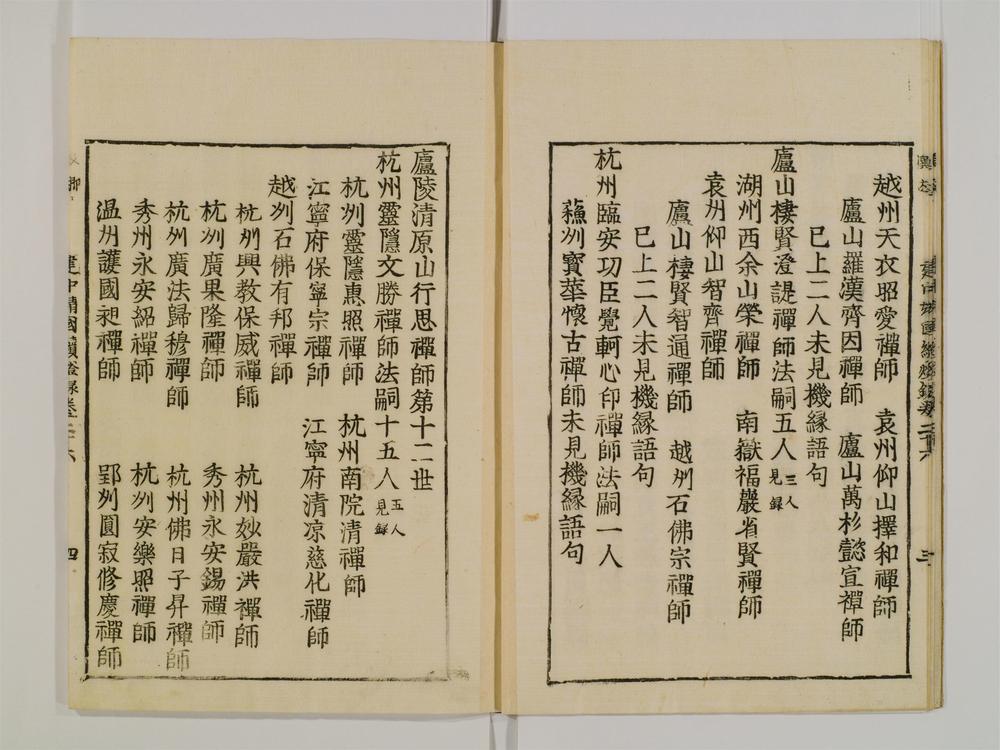 越州天衣昭愛禪師　袁州仰山擇和禪師
廬山羅漢齊因禪師　廬山萬杉懿宣禪師
巳上二人未見機緣語句
廬山棲賢澄諟禪師法嗣五人三人見錄
湖州西余山榮禪師　南嶽福嚴省賢禪師
袁州仰山智齊禪師
廬山棲賢智通禪師　越州石佛宗禪師
巳上二人未見機緣語句
杭州臨安功臣覺軻心印禪師法嗣一人
蘓州寶華懷古禪師未見機緣語句
三
廬陵清原山行思禪師第十二世
杭州靈隱文勝禪師法嗣十五人五人見錄
杭州靈隱惠照禪師　杭州南院清禪師
江寧府保寧宗禪師　江寧府清凉慈化禪師
越州石佛有邦禪師
杭州興教保威禪師　杭州妙嚴洪禪師
杭州廣果隆禪師　秀州永安錫禪師
杭州廣法歸穆禪師　杭州佛日子昇禪師
秀州永安紹禪師　杭州安樂照禪師
温州護國昶禪師　郢州圓寂修慶禪師
建中靖國續燈錄卷二十六　四